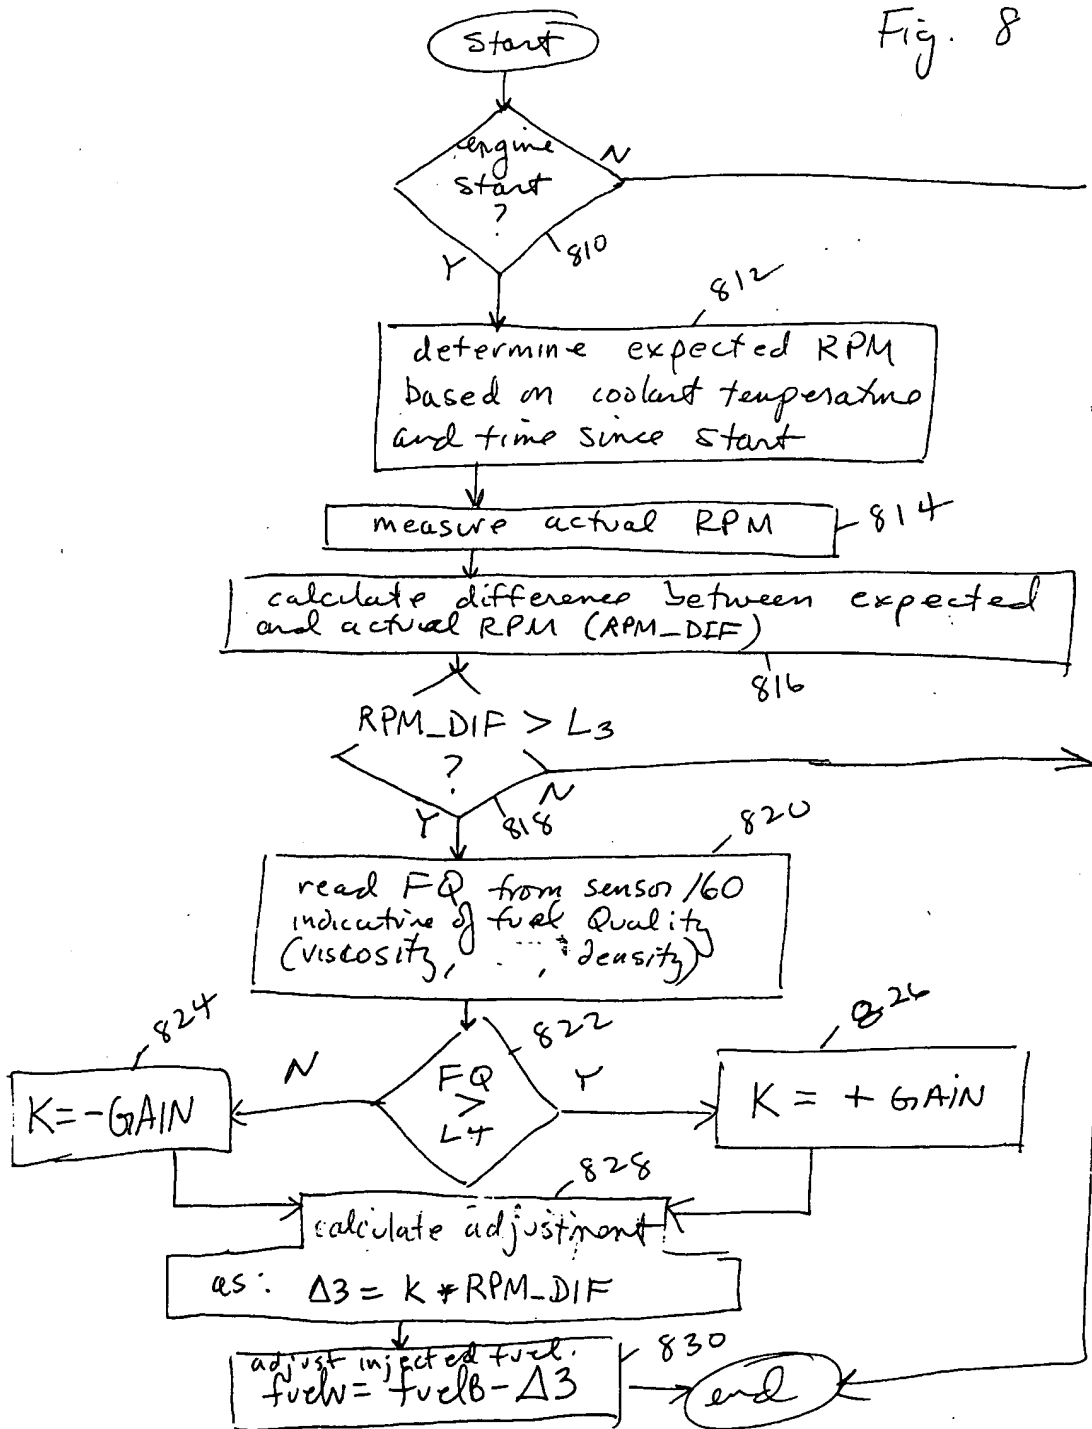 Fig. 8
start
engine
start
?
N
Y
810
812
determine expected RPM
based on coolant temperature
and time since start
measure actual RPM
814
calculate difference between expected
and actual RPM (RPM_DIF)
816
RPM_DIF > L3
?
N
Y
818
820
read FQ from sensor 160
indicative of fuel Quality
(viscosity, ..., density)
824
822
826
N
FQ
>
L4
Y
K=-GAIN
K = + GAIN
828
calculate adjustment
as: Δ3 = K * RPM_DIF
830
adjust injected fuel.
fuelN = fuelB - Δ3
end